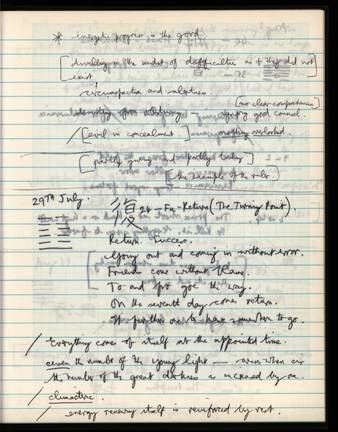 * energetic progress in the good
[dwelling in the midst of difficulties as if they did not
exist]
circumspection and
[no clear comprehension]
good counsel.
/ [evil in concealment]
[partly going and partly]
[the of the ruler.]
29TH July. 復 24 - Fu - Return (The Turning Point).
Return. Success.
Going out and coming in without error.
Friends come without blame.
To and fro goes the way.
On the seventh day comes return.
It furthers one to have somewhere to go.
/ Everything comes of itself at the appointed time.
seven the number of the young light — arises when six
the number of the great darkness is increased by one.
/
/ energy renewing itself is reinforced by rest.